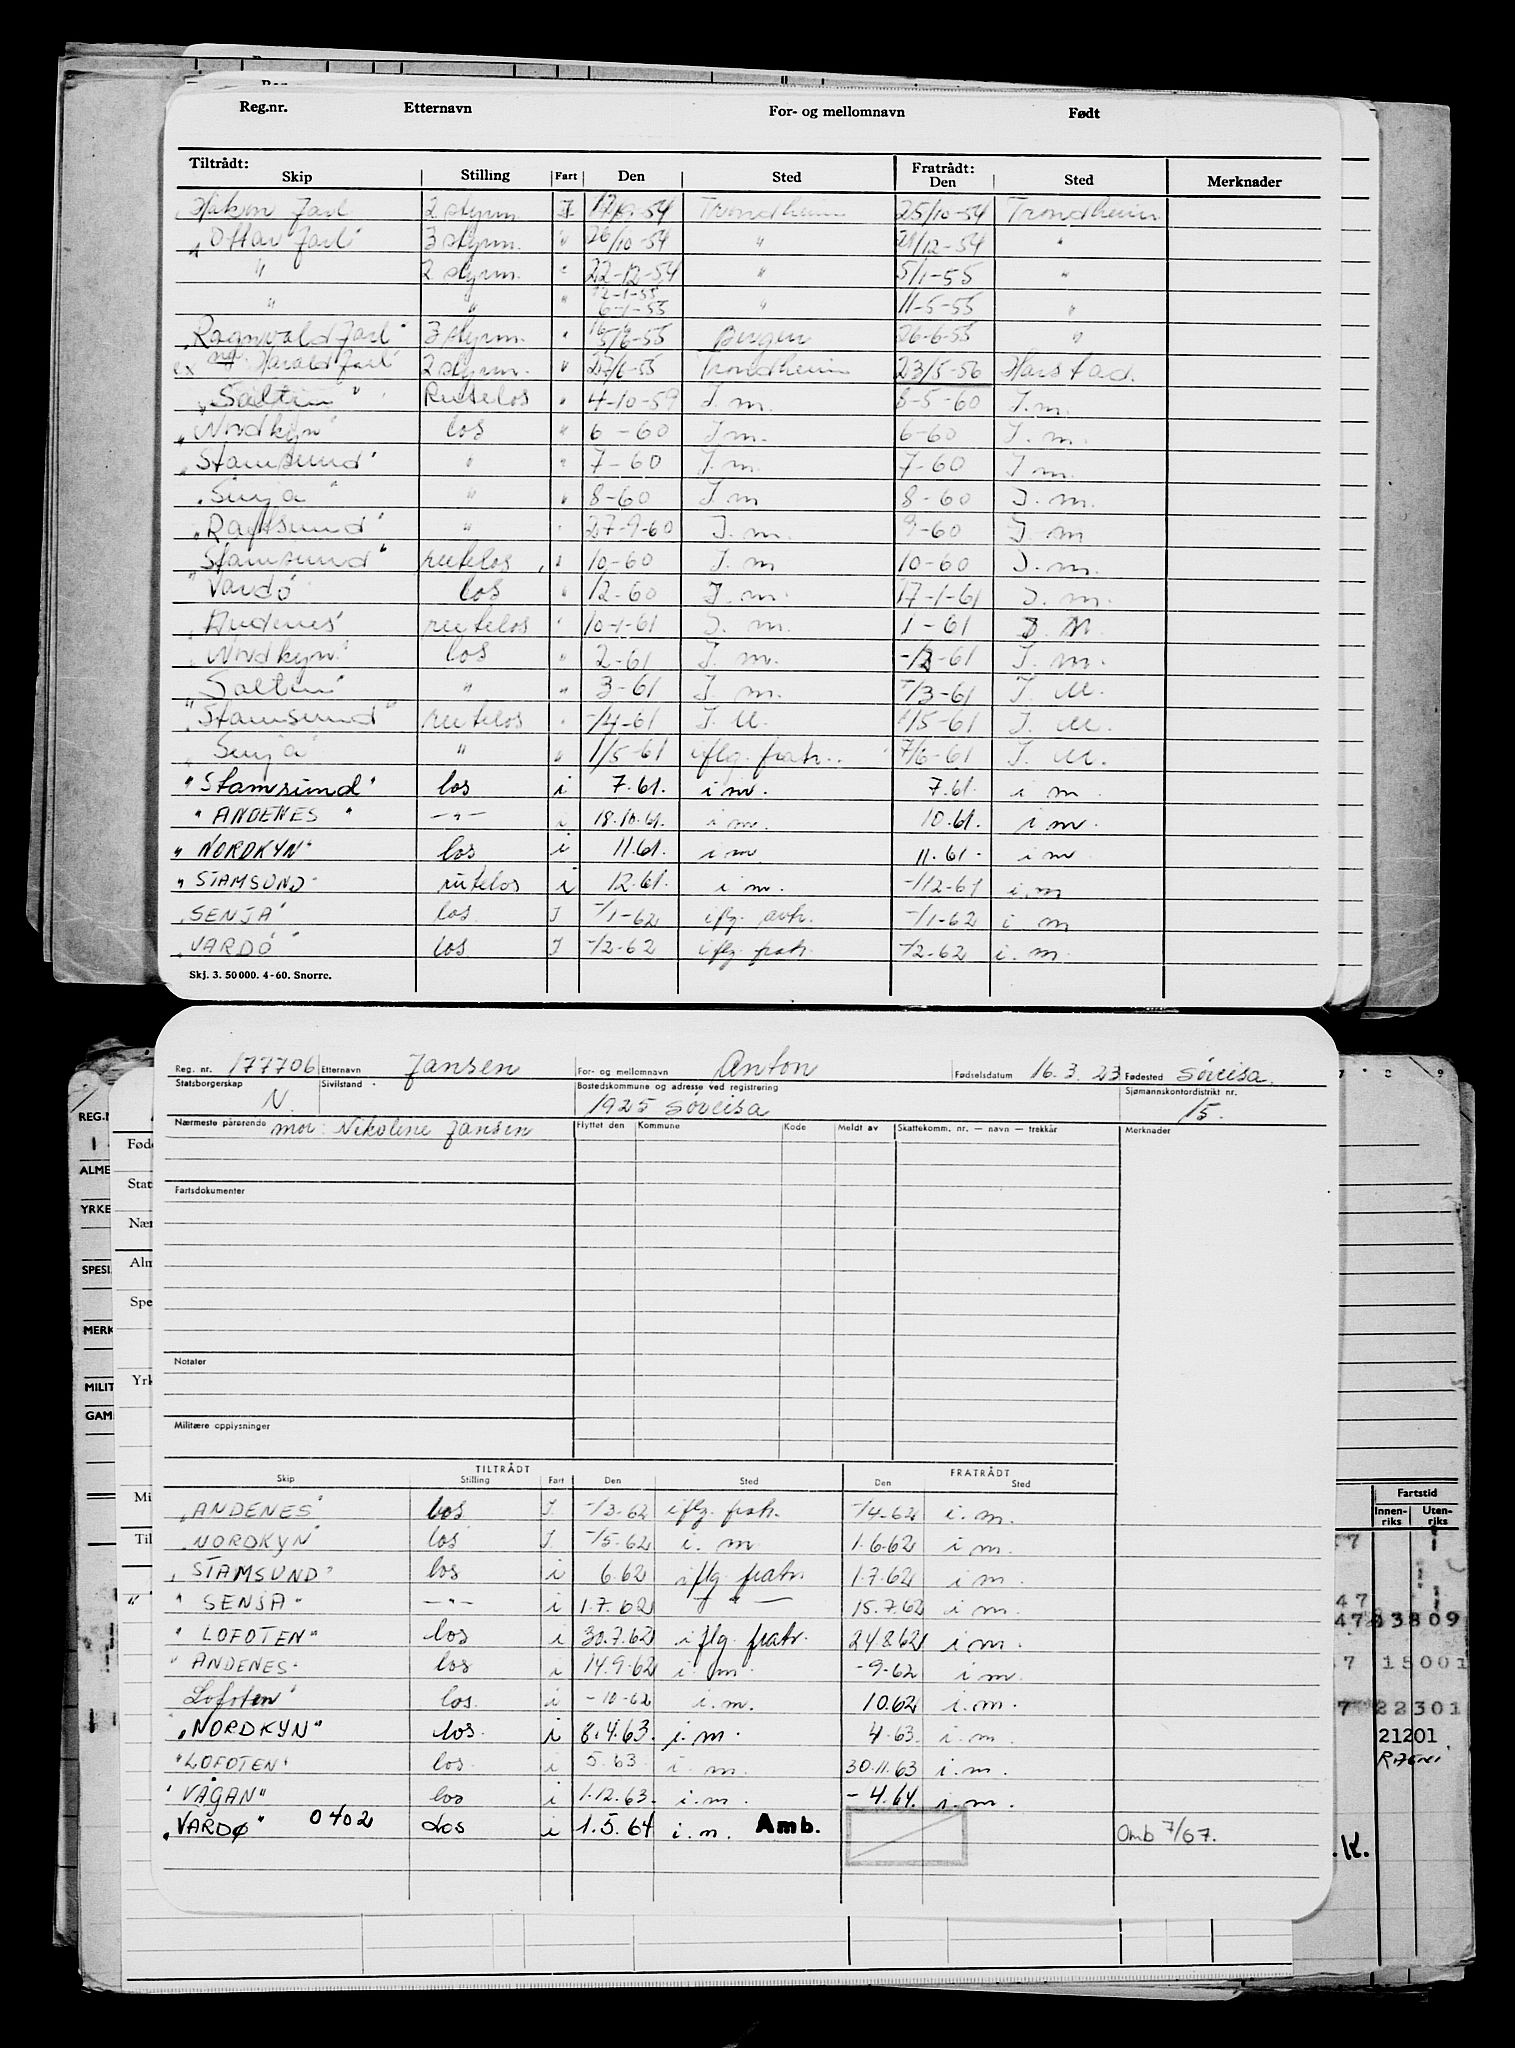 Reg.nr. Etternavn For- og mellomnavn Født
Tiltrådt: Fratrådt:
Skip Stilling Fart Den Sted Den Sted Merknader
Håkon Jarl 2 styrm. I -54 Trondheim 25/10-54 Trondheim
"Ottar Jarl" 3 styrm. " 26/10-54 " /12-54 "
" 2 styrm. " 22-12-54 " 5/1-55 "
" " " 12-1-55 6-1-55 " 11-5-55 "
"Ragnvald Jarl" 3 styrm. " -55 Bergen 26-6-55 "
ex Harald Jarl 2 styrm. " 27/6-55 Trondheim 23/5-56 Harstad.
"Salten" Rutelos " 4-10-59 I.m. 8-5-60 I.m.
"Nordkyn" los " 6-60 I m. 6-60 I. m.
"Stamsund" " " 7-60 I. m. 7-60 I m.
"Senja" " " 8-60 I m 8-60 I. m.
"Raftsund" " " 27-9-60 I. m. 9-60 I m
"Stamsund" rutelos " 10-60 I. m 10-60 I. m.
"Vardø los " 12-60 I. m. 17-1-61 I. m.
"Andenes" rutelos " 10-1-61 I. m. 1-61 I. M.
"Nordkyn" los " 2-61 I. m. -/2-61 I. m.
"Salten" " " 3-61 I. m. -/3-61 I. M.
"Stamsund" rutelos " -/4-61 I. M. /5-61 I. M.
"Senja" " " 1/5-61 iflg. fratr. 7/6-61 I. M.
"Stamsund" los i 7.61. i m. 7.61. i m.
"ANDENES" -"- i 18.10.61. i m. 10.61. i m.
"NORDKYN" los i 11.61. i m 11.61. i m
"STAMSUND" rutelos i 12.61. i m. -/12-61 i. m
"SENJA" los. I -/1-62 iflg. avtr. -/1-62 i m
"VARDØ" los I -/2-62 iflg. fratr. -/2-62 i. m.
Skj. 3. 50 000. 4-60. Snorre.
Reg. nr. 177706 Etternavn Jansen For- og mellomnavn Anton Fødselsdatum 16.3.23 Fødested Sørreisa.
Statsborgerskap N. Sivilstand Bostedskommune og adresse ved registrering 1925 Sørreisa Sjømannskontordistrikt nr. 15.
Nærmeste pårørende mor: Nikoline Jansen Flyttet den Kommune Kode Meldt av Skattekomm. nr. — navn — trekkår Merknader
Fartsdokumenter
Notater
Militære opplysninger
TILTRÅDT FRATRÅDT
Skip Stilling Fart Den Sted Den Sted
"ANDENES" los I -/3-62 iflg. fratr. -/4-62 i. m.
"NORDKYN" los I -/5-62 i. m 1.6.62 i m.
"STAMSUND" los i 6.62 iflg fratr. 1.7.62 i m.
"SENJA" -"- i 1.7.62 — " — 15.7.62 i m.
"LOFOTEN" los i 30.7.62 iflg. fratr. 24.8.62 i m.
"ANDENES" los i 14.9.62 i. m. -9-62 i m.
Lofoten" los. i -10-62 i.m. 10.62 i.m.
"NORDKYN" los. i 8.4.63. i. m. 4.63. i. m.
"LOFOTEN" los. i 5.63. i m. 30.11.63 i.m.
"VÅGAN" los i 1.12.63. i.m. -4.64. i.m.
"VARDØ" 0402 Los i 1.5.64 i.m. Amb. Omb 7/67.
REG.N
ALME
YRKE
SPESI.
MERK
MILIT
GAM
Føde
Stat
Nær
Alm
Spe
Yrk
Mi
Til
7 8 9
Fartstid
Innen-riks Uten-riks
47 33809
7 15001
7 22301
21201
.K.